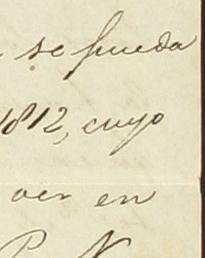 se pueda
1812, cuyo
ver en
P. N